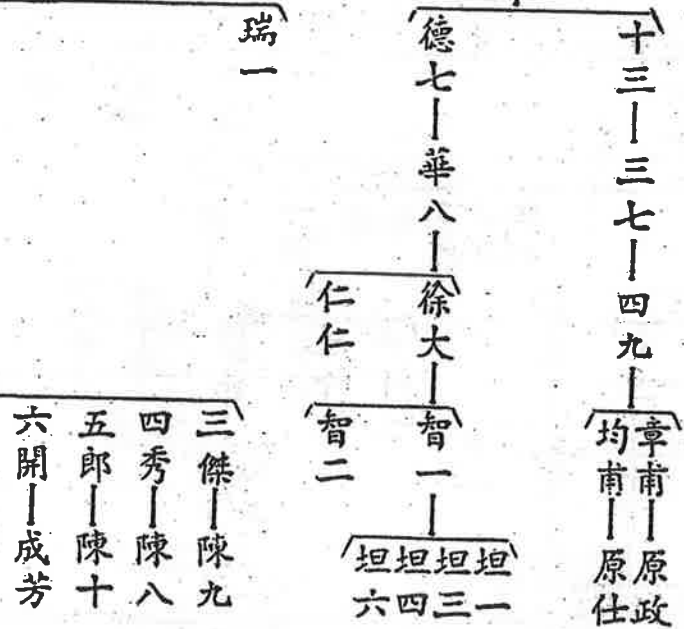 十三—三七—四九
章甫—原政
均甫—原仕
德七—華八
徐大
仁仁
智一
智二
坦一
坦三
坦四
坦六
瑞一
三傑—陳九
四秀—陳八
五郎—陳十
六開—成芳